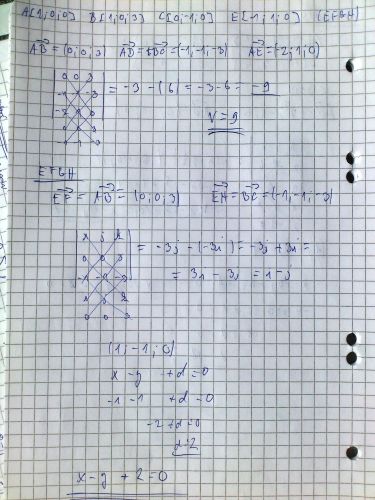 A[1;0;0] B[1;0;3] C[0;-1;0] E[-1;1;0] (EFGH)
AB = (0;0;3) AD = BC = (-1;-1;-3) AE = (-2;1;0)
0 0 3
-1 -1 -3
-2 1 0
0 0 3
-1 -1 -3
= -3 - (6) = -3-6 = -9
V = 9
EFGH
EF = AB = (0;0;3) EH = BC = (-1;-1;-3)
i j k
0 0 3
-1 -1 -3
i j k
0 0 3
= -3j - (-3i) = -3j + 3i =
= 3i - 3j = i - j
(1;-1;0)
x - y + d = 0
-1 -1 + d = 0
-2 + d = 0
d = 2
x - y + 2 = 0